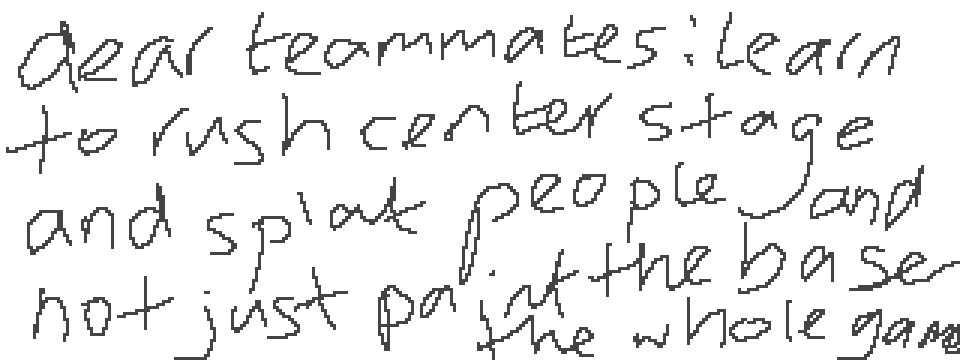 dear teammates: learn
to rush center stage
and splat people and
not just paint the base
the whole game